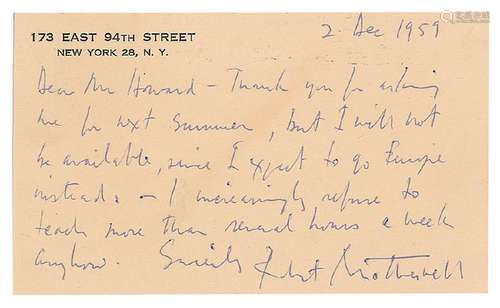 173 EAST 94TH STREET
NEW YORK 28, N. Y.
2 Dec 1959
Dear Mr Howard — Thank you for asking
me for next summer, but I will not
be available, since I expect to go Europe
instead. — I increasingly refuse to
teach more than several hours a week
anyhow. Sincerely Robert Motherwell